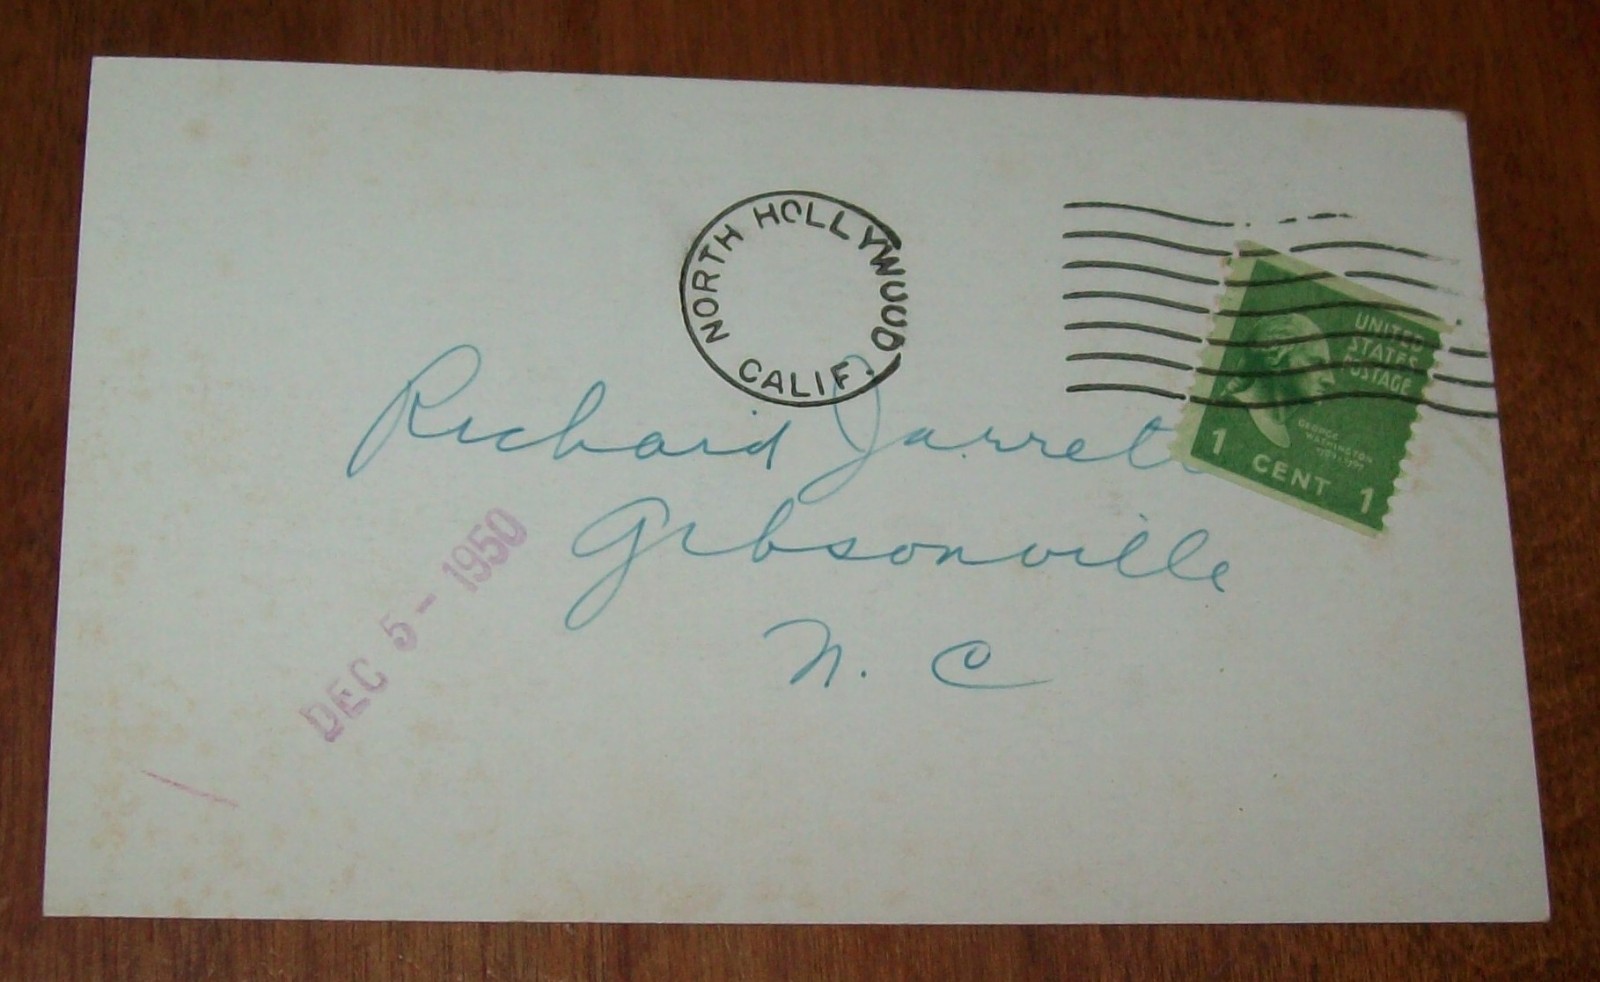 NORTH HOLLYWOOD
CALIF.
UNITED
STATES
POSTAGE
GEORGE
WASHINGTON
1 CENT 1
Richard Jarrett
Gibsonville
N. C
DEC 5 - 1950